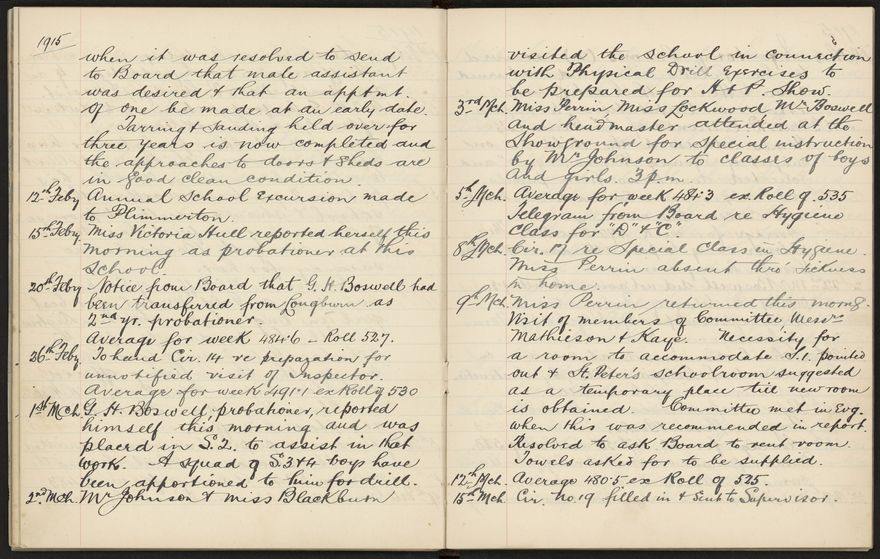 1915
when it was resolved to send
to Board that male assistant
was desired & that an apptmt.
of one be made at an early date.
Tarring & Sanding held over for
three years is now completed and
the approaches to doors & sheds are
in good clean condition.
12th Feby Annual School Excursion made
to Plimmerton.
15th Feby. Miss Victoria Hull reported herself this
morning as probationer at this
School
20th Feby Notice from Board that G. H. Boswell had
been transferred from Longburn as
2nd yr. probationer.
Average for week 484.6 – Roll 527.
26th Feby. To hand Cir. 14 re preparation for
unnotified visit of Inspector.
Average for week 491.1 ex Roll of 530
1st Mch. G. H. Boswell, probationer, reported
himself this morning and was
placed in S.2. to assist in that
work. A squad of S3&4 boys have
been apportioned to him for drill.
2nd Mch. Mr Johnson & Miss Blackburn
visited the school in connection
with Physical Drill Exercises to
be prepared for A & P. Show.
3rd Mch. Miss Perrin, Miss Lockwood, Mr Boswell
and headmaster attended at the
Showground for special instruction
by Mr Johnson to classes of boys
and girls. 3 p.m
5th Mch. Average for week 484.3 ex Roll of 535
Telegram from Board re Hygiene
Class for "D" & "C".
8th Mch. Cir. 17 re Special Class in Hygiene.
Miss Perrin absent thro' sickness
in home.
9th Mch. Miss Perrin returned this morng.
Visit of members of Committee Messrs
Mathieson & Kaye. Necessity for
a room to accommodate S.1. pointed
out & St. Peter's schoolroom suggested
as a temporary place till new room
is obtained. Committee met in Evg.
when this was recommended in report.
Resolved to ask Board to rent room.
Towels asked for to be supplied.
12th Mch. Average 480.5 ex Roll of 525.
15th Mch. Cir. No. 19 filled in & sent to Supervisor.